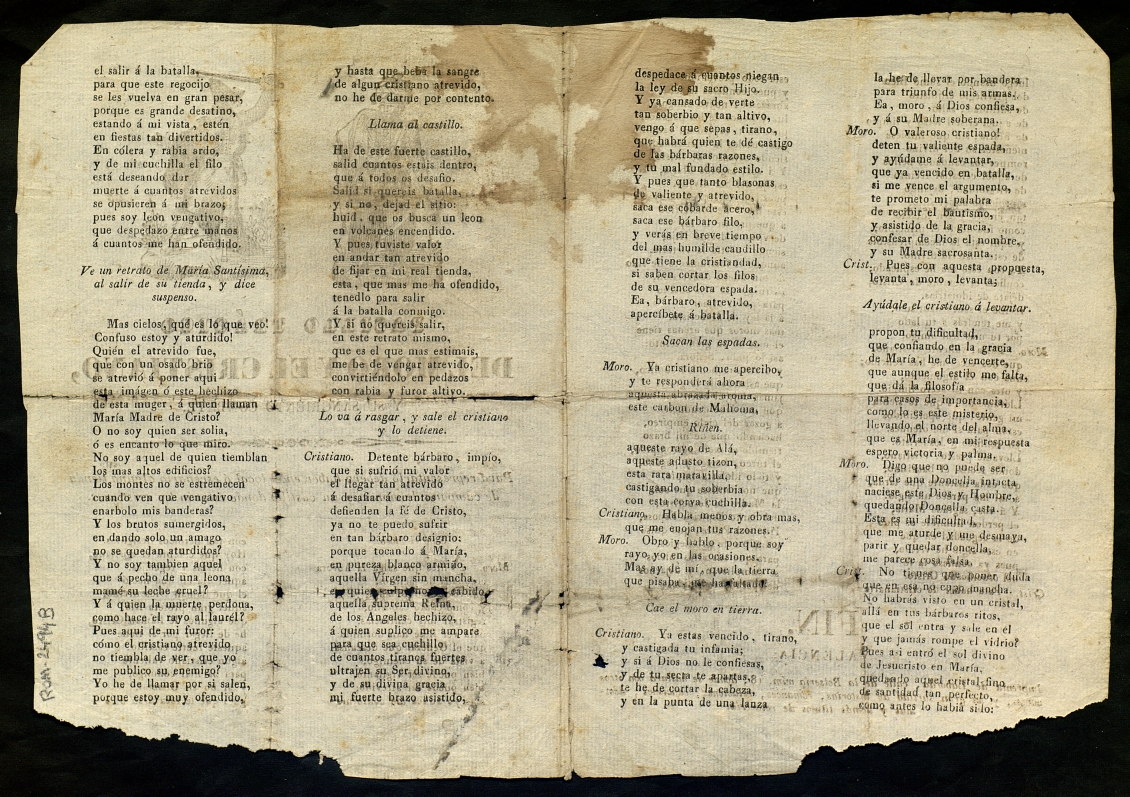 el salir á la batalla,
para que este regocijo
se les vuelva en gran pesar,
porque es grande desatino,
estando á mi vista, estén
en fiestas tan divertidos.
En cólera y rabia ardo,
y de mi cuchilla el filo
está deseando dar
muerte á cuantos atrevidos
se opusieren á mi brazo;
pues soy leon vengativo,
que despedazo entre manos
á cuantos me han ofendido.
Ve un retrato de María Santísima,
al salir de su tienda, y dice
suspenso.
Mas cielos, qué es lo que veo!
Confuso estoy y aturdido!
Quién el atrevido fue,
que con un osado brio
se atrevió á poner aqui
esta imágen ó este hechizo
de esta muger, á quien llaman
María Madre de Cristo?
O no soy quien ser solia,
ó es encanto lo que miro.
No soy aquel de quien tiemblan
los mas altos edificios?
Los montes no se estremecen
cuando ven que vengativo
enarbolo mis banderas?
Y los brutos sumergidos,
en dando solo un amago
no se quedan aturdidos?
Y no soy tambien aquel
que á pecho de una leona
mamé su leche cruel?
Y á quien la muerte perdona,
como hace el rayo al laurél?
Pues aqui de mi furor:
cómo el cristiano atrevido
no tiembla de ver, que yo
me publico su enemigo?
Yo he de llamar por si salen,
porque estoy muy ofendido,
y hasta que beba la sangre
de algun cristiano atrevido,
no he de darme por contento.
Llama al castillo.
Ha de este fuerte castillo,
salid cuantos estais dentro,
que á todos os desafio.
Salid si quereis batalla,
y si no, dejad el sitio:
huid, que os busca un leon
en volcanes encendido.
Y pues tuviste valor
en andar tan atrevido
de fijar en mi real tienda,
esta, que mas me ha ofendido,
tenedlo para salir
á la batalla conmigo.
Y si no quereis salir,
en este retrato mismo,
que es el que mas estimais,
me he de vengar atrevido,
convirtiéndolo en pedazos
con rabia y furor altivo.
Lo va á rasgar, y sale el cristiano
y lo detiene.
Cristiano. Detente bárbaro, impío,
que si sufrió mi valor
el llegar tan atrevido
á desafiar á cuantos
defienden la fé de Cristo,
ya no te puedo sufrir
en tan bárbaro designio:
porque tocando á María,
en pureza blanco armiño,
aquella Vírgen sin mancha,
en quien culpa no ha cabido,
aquella suprema Reina,
de los Angeles hechizo,
á quien suplico me ampare
para que sea cuchillo
de cuantos tiranos fuertes
ultrajen su Ser divino,
y de su divina gracia
mi fuerte brazo asistido,
despedace á cuantos niegan
la ley de su sacro Hijo.
Y ya cansado de verte
tan soberbio y tan altivo,
vengo á que sepas, tirano,
que habrá quien te dé castigo
de las bárbaras razones,
y tu mal fundado estilo.
Y pues que tanto blasonas
de valiente y atrevido,
saca ese cobarde acero,
saca ese bárbaro filo,
y verás en breve tiempo
del mas humilde caudillo
que tiene la cristiandad,
si saben cortar los filos
de su vencedora espada.
Ea, bárbaro, atrevido,
apercíbete á batalla.
Sacan las espadas.
Moro. Ya cristiano me apercibo,
y te responderá ahora
aquesta abrasada aroma,
este carbon de Mahoma,
Riñen.
aqueste rayo de Alá,
aqueste adusto tizon,
esta rara maravilla,
castigando tu soberbia
con esta corva cuchilla.
Cristiano. Habla menos y obra mas,
que me enojan tus razones.
Moro. Obro y hablo, porque soy
rayo yo en las ocasiones.
Mas ay de mí, que la tierra
que pisaba, me ha faltado.
Cae el moro en tierra.
Cristiano. Ya estas vencido, tirano,
y castigada tu infamia;
y si á Dios no le confiesas,
y de tu secta te apartas,
te he de cortar la cabeza,
y en la punta de una lanza
la he de llevar por bandera
para triunfo de mis armas.
Ea, moro, á Dios confiesa,
y á su Madre soberana.
Moro. O valeroso cristiano!
deten tu valiente espada,
y ayúdame á levantar,
que ya vencido en batalla,
si me vence el argumento,
te prometo mi palabra
de recibir el bautismo,
y asistido de la gracia,
confesar de Dios el nombre,
y su Madre sacrosanta.
Crist. Pues con aquesta propuesta,
levanta, moro, levanta;
Ayúdale el cristiano á levantar.
propon tu dificultad,
que confiando en la gracia
de María, he de vencerte,
que aunque el estilo me falta,
que dá la filosofía
para casos de importancia,
como lo es este misterio,
llevando el norte del alma,
que es María, en mi respuesta
espero victoria y palma.
Moro. Digo que no puede ser
que de una Doncella intacta
naciese este Dios y Hombre,
quedando Doncella casta.
Esta es mi dificultad,
que me aturde y me desmaya,
parir y quedar doncella,
me parece cosa falsa.
Crist. No tienes que poner duda
que en esa no cupo mancha.
No habrás visto en un cristal,
allá en tus bárbaros ritos,
que el sol entra y sale en él
y que jamás rompe el vidrio?
Pues asi entró el sol divino
de Jesucristo en María,
quedando aquel cristal fino
de santidad tan perfecto,
como antes lo habia sido:
ROM-2494B